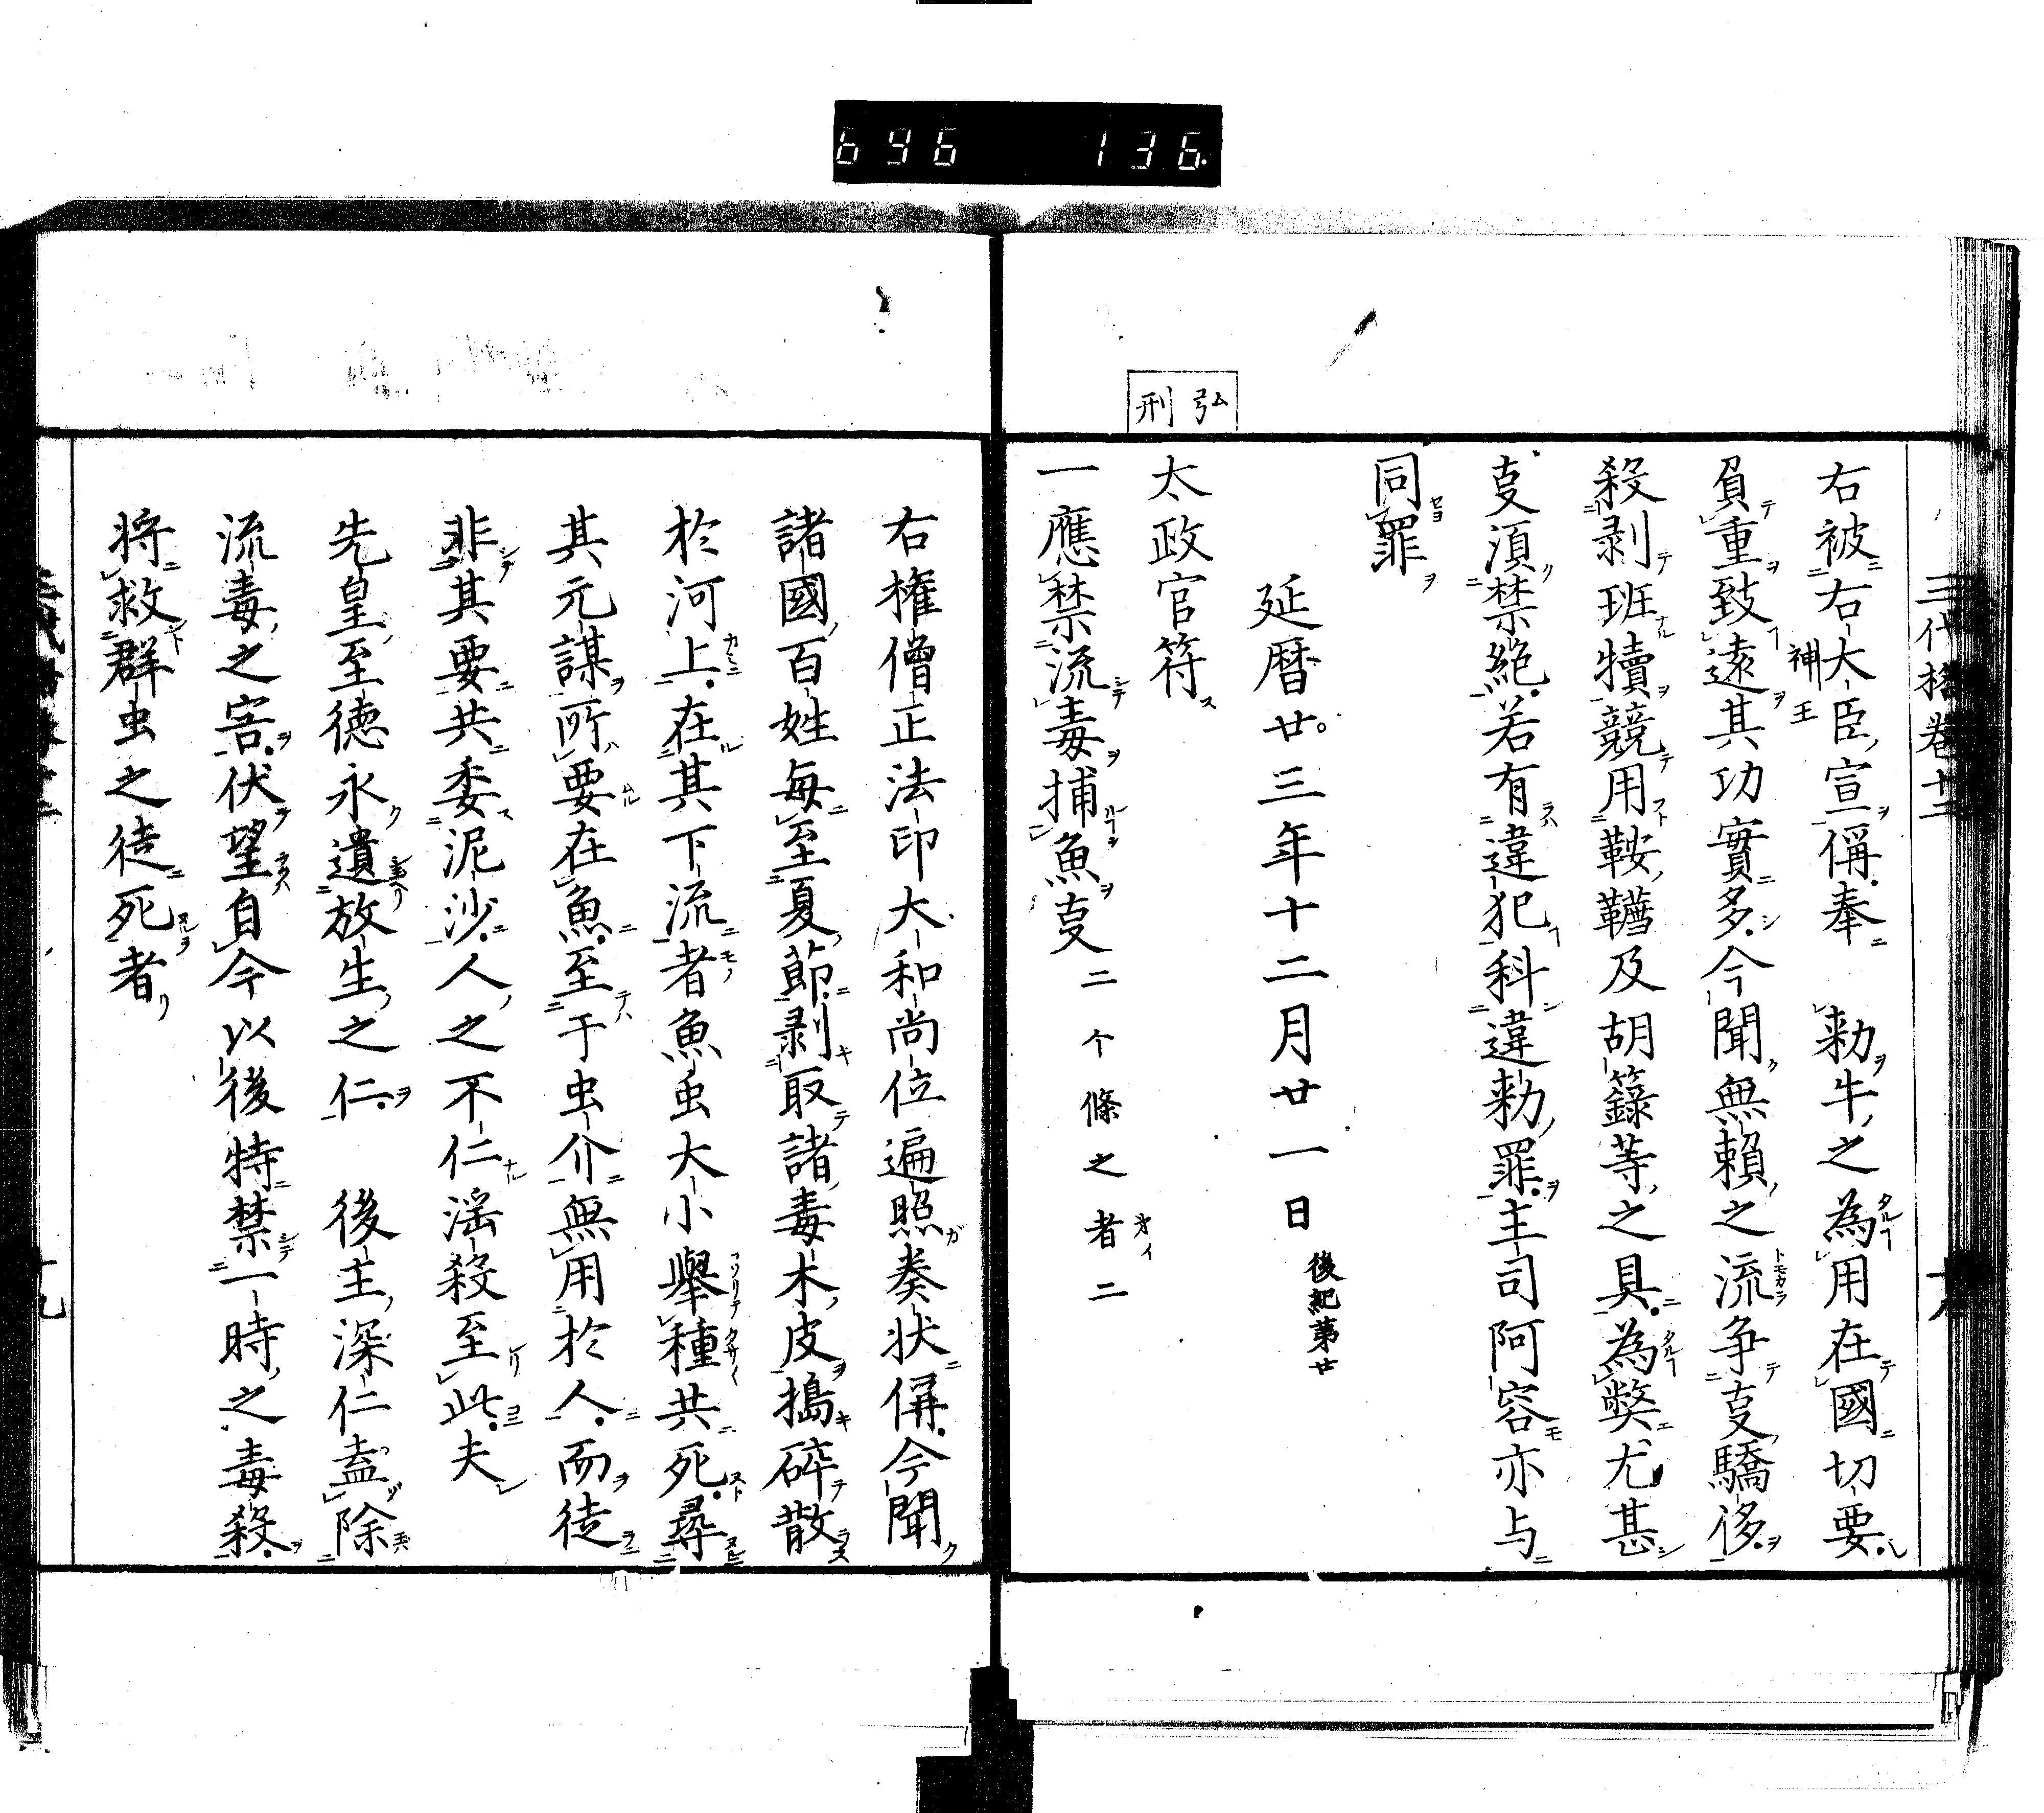 696 136
三代格卷十二
右被右大臣宣偁奉 勅牛之為用在國切要
神王
負重致遠其功實多今聞無賴之流争㕝驕侈
殺剥班犢競用鞍韉及胡籙等之具為弊尤甚
㕝湏禁絶若有違犯科違勅罪主司阿容亦与
同罪
延暦廿三年十二月廿一日 後紀第廿
弘刑
太政官符
一應禁流毒捕魚㕝 二个條之者二
右權僧正法印大和尚位遍照奏状偁今聞
諸國百姓毎至夏節剥取諸毒木皮搗碎散
於河上在其下流者魚虫大小擧種共死尋
其元謀所要在魚至于虫介無用於人而徒
非其要共委泥沙人之不仁淫殺至此夫
先皇至徳永遺放生之仁 後主深仁盍除
流毒之害伏望自今以後特禁一時之毒殺
将救群虫之徒死者